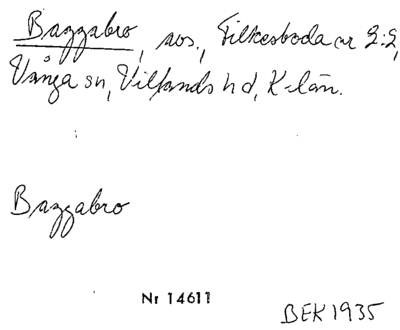 Bazzabro, sos., Filkesboda nr 2:2,
Vånga sn, Villands hd, K-län.
Bazzabro
Nr 14611
BEK 1935